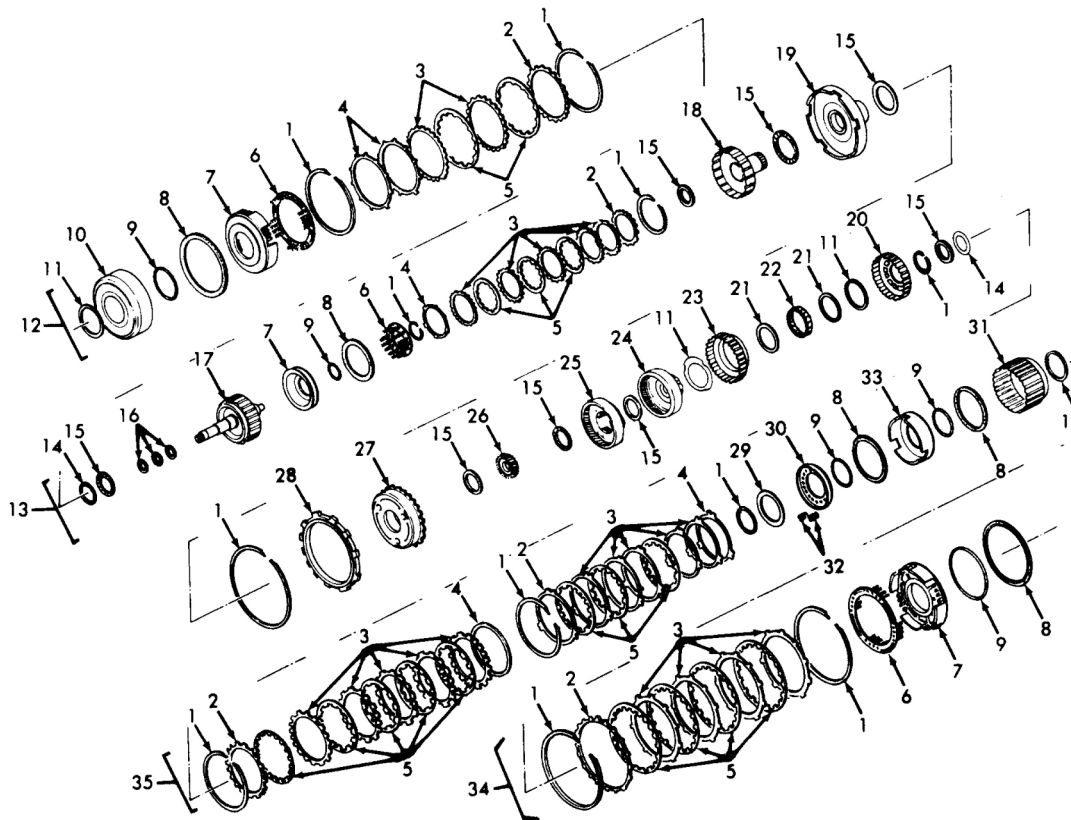 1
2
3
4
1
5
6
7
8
9
10
11
12
15
19
15
18
15
1
2
3
5
4
1
6
8
9
7
17
16
15
14
13
15
20
11
21
22
21
23
11
24
25
15
14
1
15
26
15
27
28
1
31
1
9
33
8
8
9
30
29
1
4
32
3
2
1
5
8
9
7
6
1
3
2
1
5
34
4
3
2
1
5
35